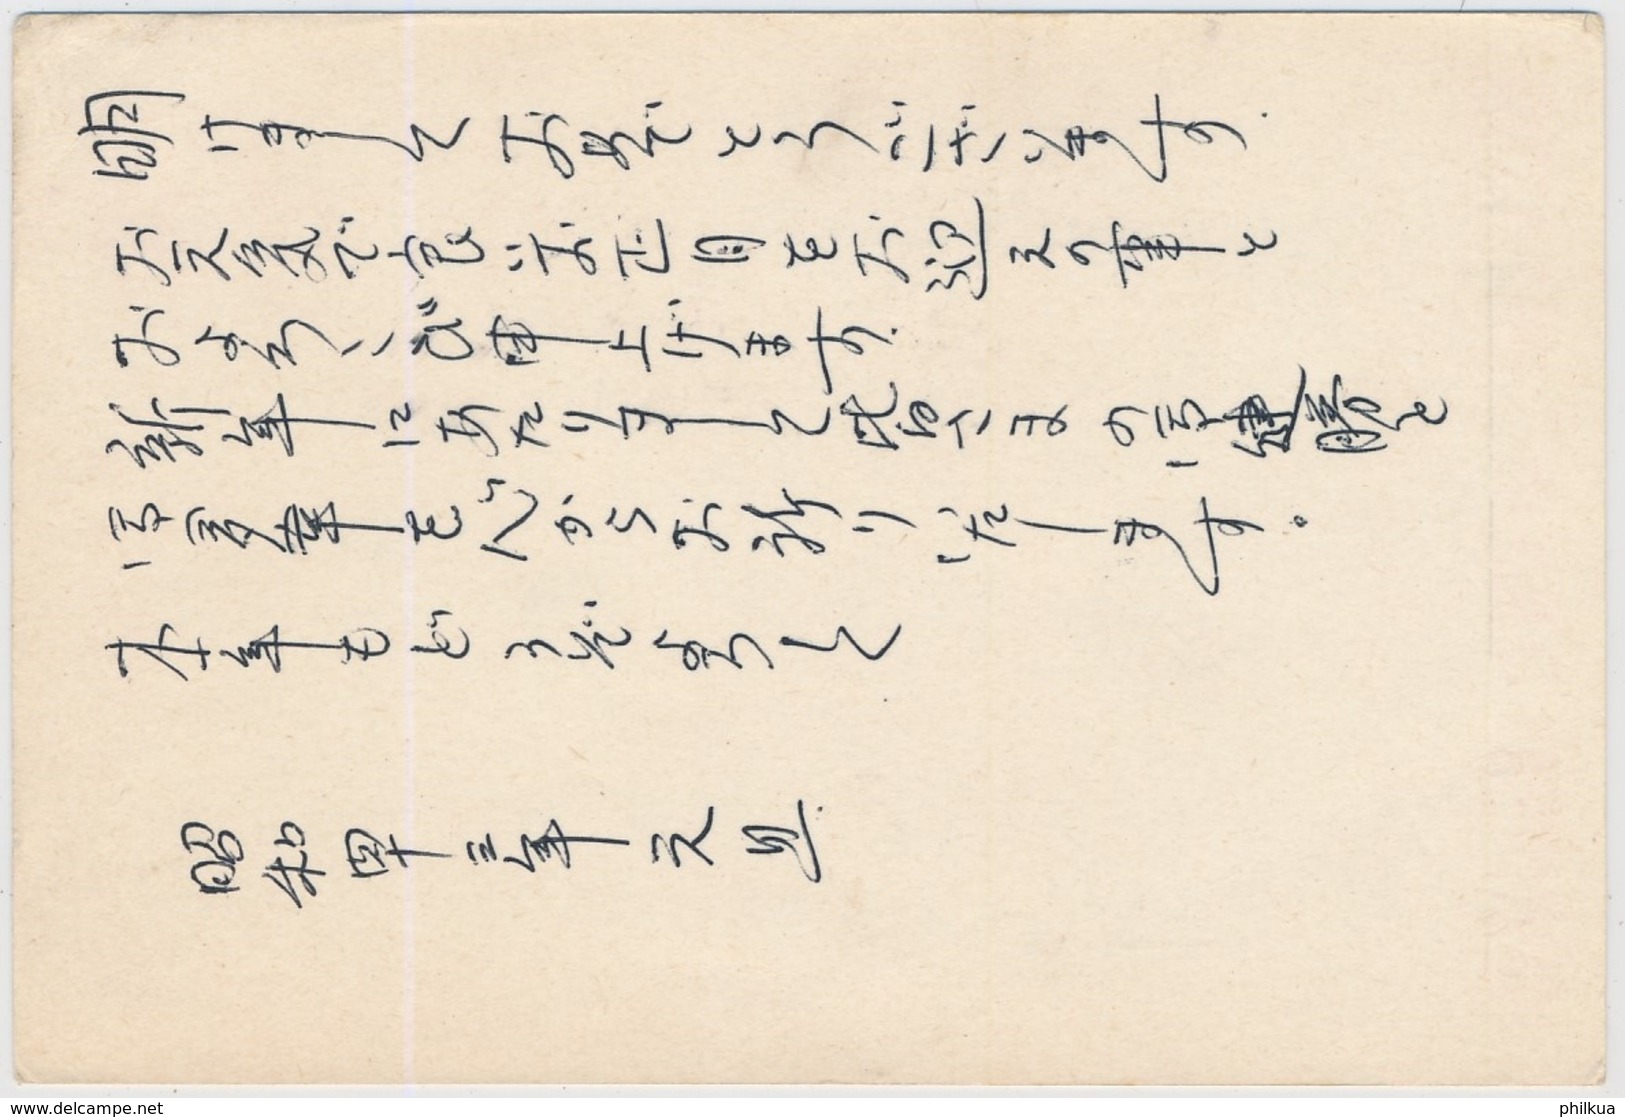 明けましておめでとうございます.
お元気で良いお正月をお迎えの事と
およろこび申上げます.
新年にあたりまして皆さまの御健勝と
御多幸を心からお祈りいたします。
本年もどうぞよろしく
昭和四十三年 元旦.
www.delcampe.net
philkua